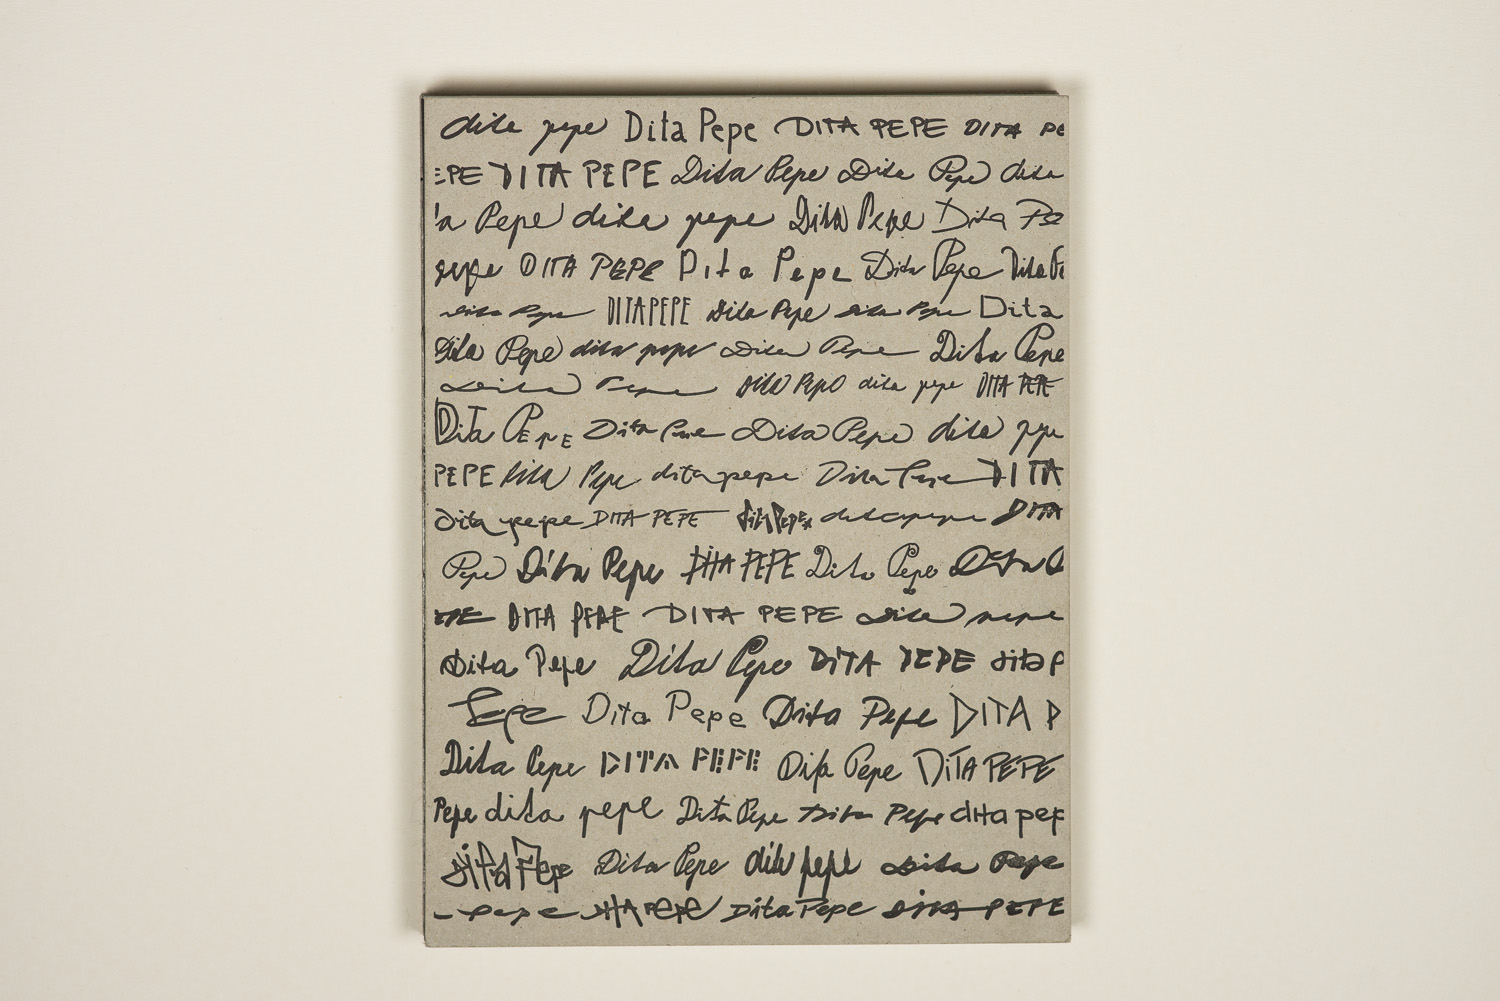 dita pepe Dita Pepe DITA PEPE DITA PE
EPE DITA PEPE Dita Pepe Dita Pepe dita
'a Pepe dita pepe Dita Pepe Dita Pe
pepe DITA PEPE Dita Pepe Dita Pepe Dita Pe
Dita Pepe DITA PEPE Dita Pepe dita Pepe Dita
Dita Pepe dita pepe Dita Pepe Dita Pepe
Dita Pepe Dita Pepe dita pepe DITA PEPE
DiTa PEpE Dita Pepe Dita Pepe dita pepe
PEPE Dita Pepe dita pepe Dita Pepe DITA
dita pepe DITA PEPE dita Pepe dita pepe DITA
Pepe Dita Pepe DITA PEPE Dita Pepe Dita
EPE DITA PEPE DITA PEPE Dita pepe
Dita Pepe Dita Pepe DiTA PEPE dita p
Pepe Dita Pepe Dita Pepe DITA P
Dita Pepe DITA PEPE Dita Pepe DiTA PEPE
Pepe dita pepe Dita Pepe Dita Pepe dita pep
dita Pepe Dita Pepe dita pepe Dita Pepe
pepe DITA PEPE Dita Pepe DITA PEPE